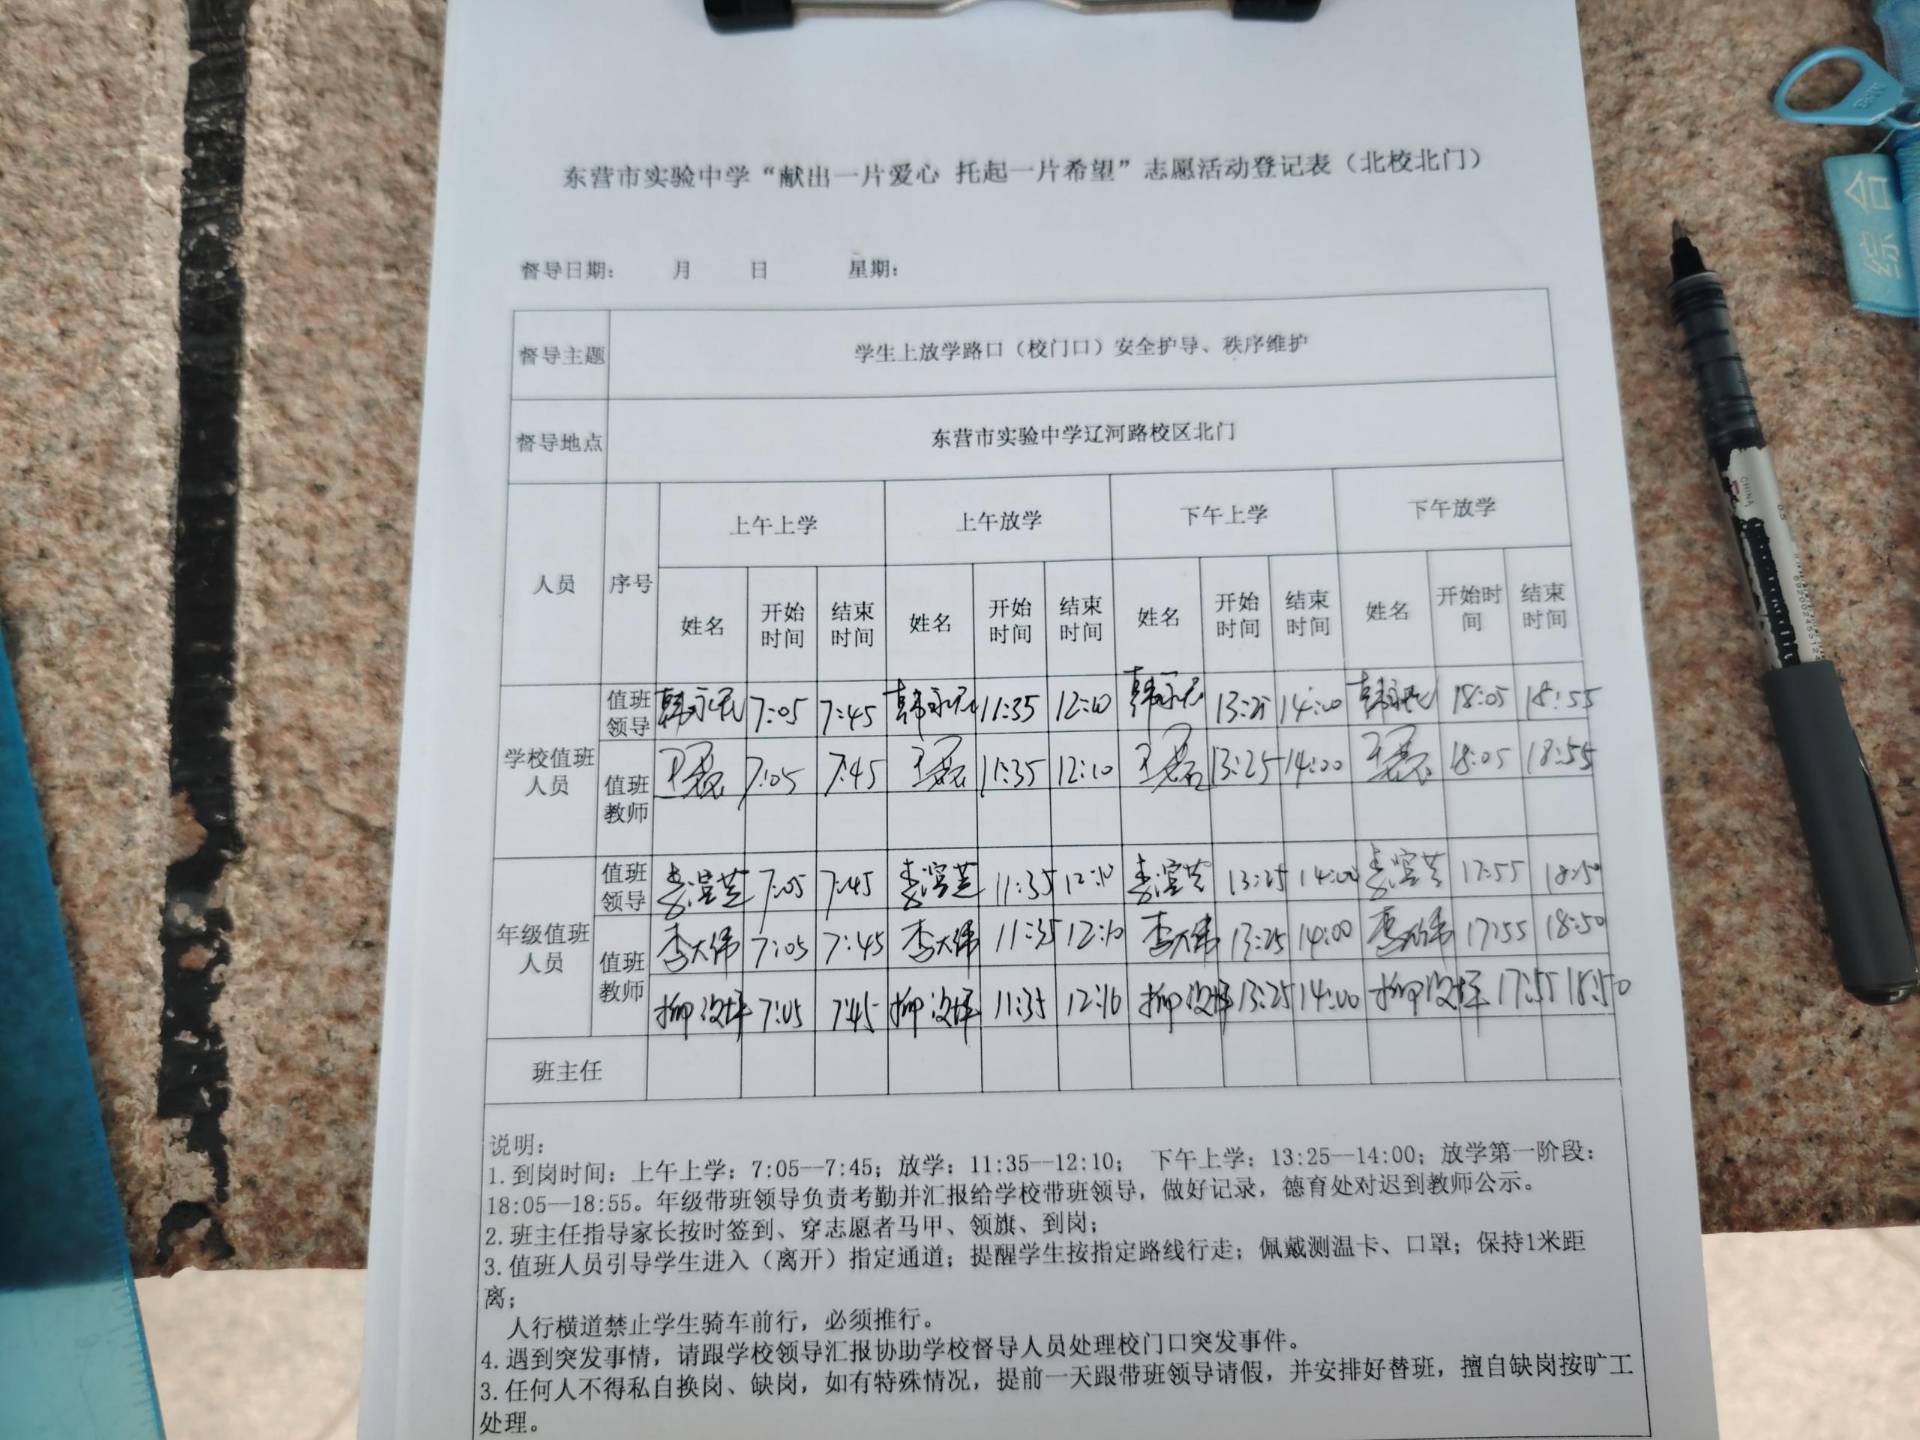 东营市实验中学“献出一片爱心 托起一片希望”志愿活动登记表（北校北门）
督导日期： 月 日 星期：
督导主题 学生上放学路口（校门口）安全护导、秩序维护
督导地点 东营市实验中学辽河路校区北门
人员 序号 上午上学 上午放学 下午上学 下午放学
姓名 开始时间 结束时间 姓名 开始时间 结束时间 姓名 开始时间 结束时间 姓名 开始时间 结束时间
学校值班人员 值班领导 韩永民 7:05 7:45 韩永民 11:35 12:10 韩永民 13:25 14:00 韩永民 18:05 18:55
值班教师 王磊 7:05 7:45 王磊 11:35 12:10 王磊 13:25 14:00 王磊 18:05 18:55
年级值班人员 值班领导 李滢芝 7:05 7:45 李滢芝 11:35 12:10 李滢芝 13:25 14:00 李滢芝 17:55 18:50
值班教师 李大伟 7:05 7:45 李大伟 11:35 12:10 李大伟 13:25 14:00 李大伟 17:55 18:50
柳 7:05 7:45 柳 11:35 12:10 柳 13:25 14:00 柳 17:55 18:50
班主任
说明：
1.到岗时间：上午上学：7:05—7:45；放学：11:35—12:10； 下午上学：13:25—14:00；放学第一阶段：
18:05—18:55。年级带班领导负责考勤并汇报给学校带班领导，做好记录，德育处对迟到教师公示。
2.班主任指导家长按时签到、穿志愿者马甲、领旗、到岗；
3.值班人员引导学生进入（离开）指定通道；提醒学生按指定路线行走；佩戴测温卡、口罩；保持1米距
离；
人行横道禁止学生骑车前行，必须推行。
4.遇到突发事情，请跟学校领导汇报协助学校督导人员处理校门口突发事件。
3.任何人不得私自换岗、缺岗，如有特殊情况，提前一天跟带班领导请假，并安排好替班，擅自缺岗按旷工
处理。
综合
CHINA
0.5